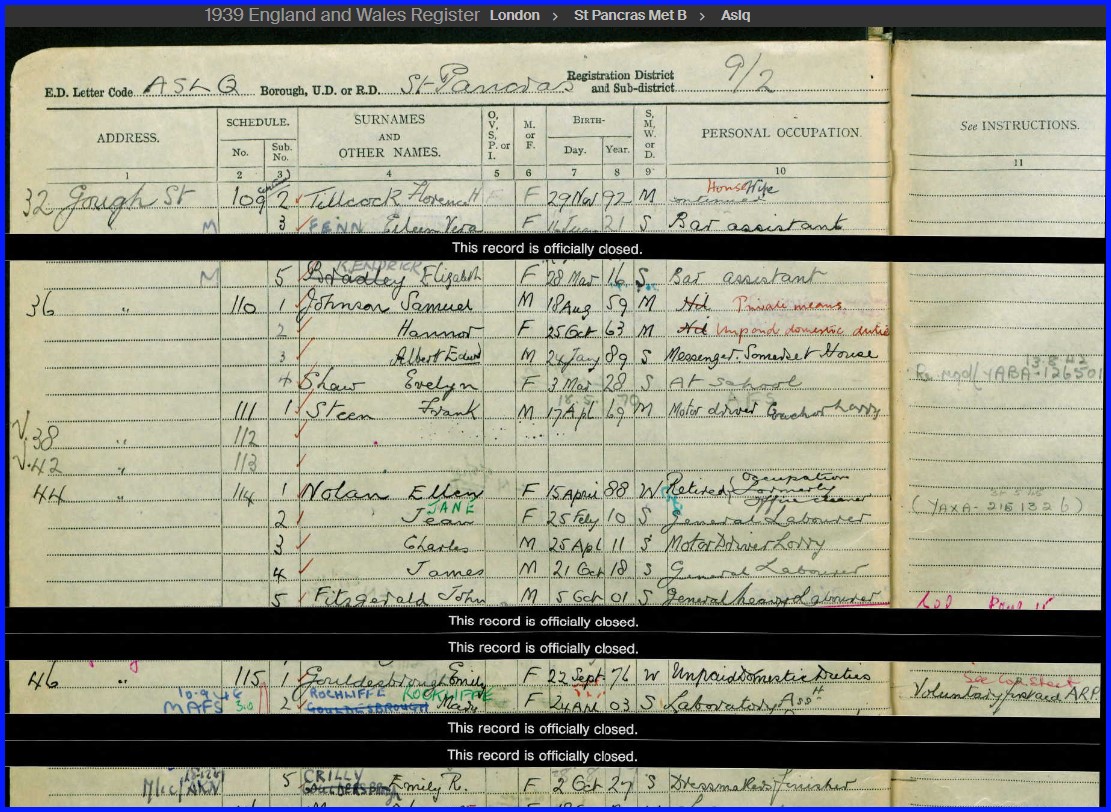 1939 England and Wales Register London > St Pancras Met B > Aslq
9/2
E.D. Letter Code ASLQ Borough, U.D. or R.D. St Pancras Registration District and Sub-district
ADDRESS. SCHEDULE. No. Sub. No. SURNAMES AND OTHER NAMES. O, V, S, P. or I. M. or F. BIRTH- Day. Year. S, M, W, or D. PERSONAL OCCUPATION. See INSTRUCTIONS.
1 2 3 4 5 6 7 8 9 10 11
32 Gough St 109 2 Tillcock Florence H F 29 Nov 92 M House Wife
M 3 FENN Eileen Vera F 21 S Bar assistant
This record is officially closed.
KENDRICK
M 5 Bradley Elizabeth F 28 Mar 16 S Bar assistant
36 " 110 1 Johnson Samuel M 18 Aug 59 M Private means
2 Hannor F 25 Oct 63 M Unpaid domestic duties
3 Albert Edwd M 24 Jany 89 S Messenger. Somerset House
4 Shaw Evelyn F 3 Mar 28 S At School
111 1 Steen Frank M 17 Apl 69 M Motor driver lorry
38 " 112
42 " 113
44 " 114 1 Nolan Ellen F 15 April 88 W Retired Occupation Formerly Office cleaner
JANE
2 Jean F 25 Feby 10 S General Labourer
3 Charles M 25 Apl 11 S Motor Driver Lorry
4 James M 21 Oct 18 S General Labourer
5 Fitzgerald John M 5 Oct 01 S General heavy Labourer
This record is officially closed.
This record is officially closed.
46 " 115 1 Gouldesborough Emily F 22 Sept 76 W Unpaid Domestic Duties
ROCHLIFFE ROCKLIFFE
2 GOULDESBOROUGH Mary F 24 Apl 03 S Laboratory Asst Voluntary first aid A.R.P.
This record is officially closed.
This record is officially closed.
CRILLY
5 Emily R. F 2 Oct 27 S Dressmakers Finisher